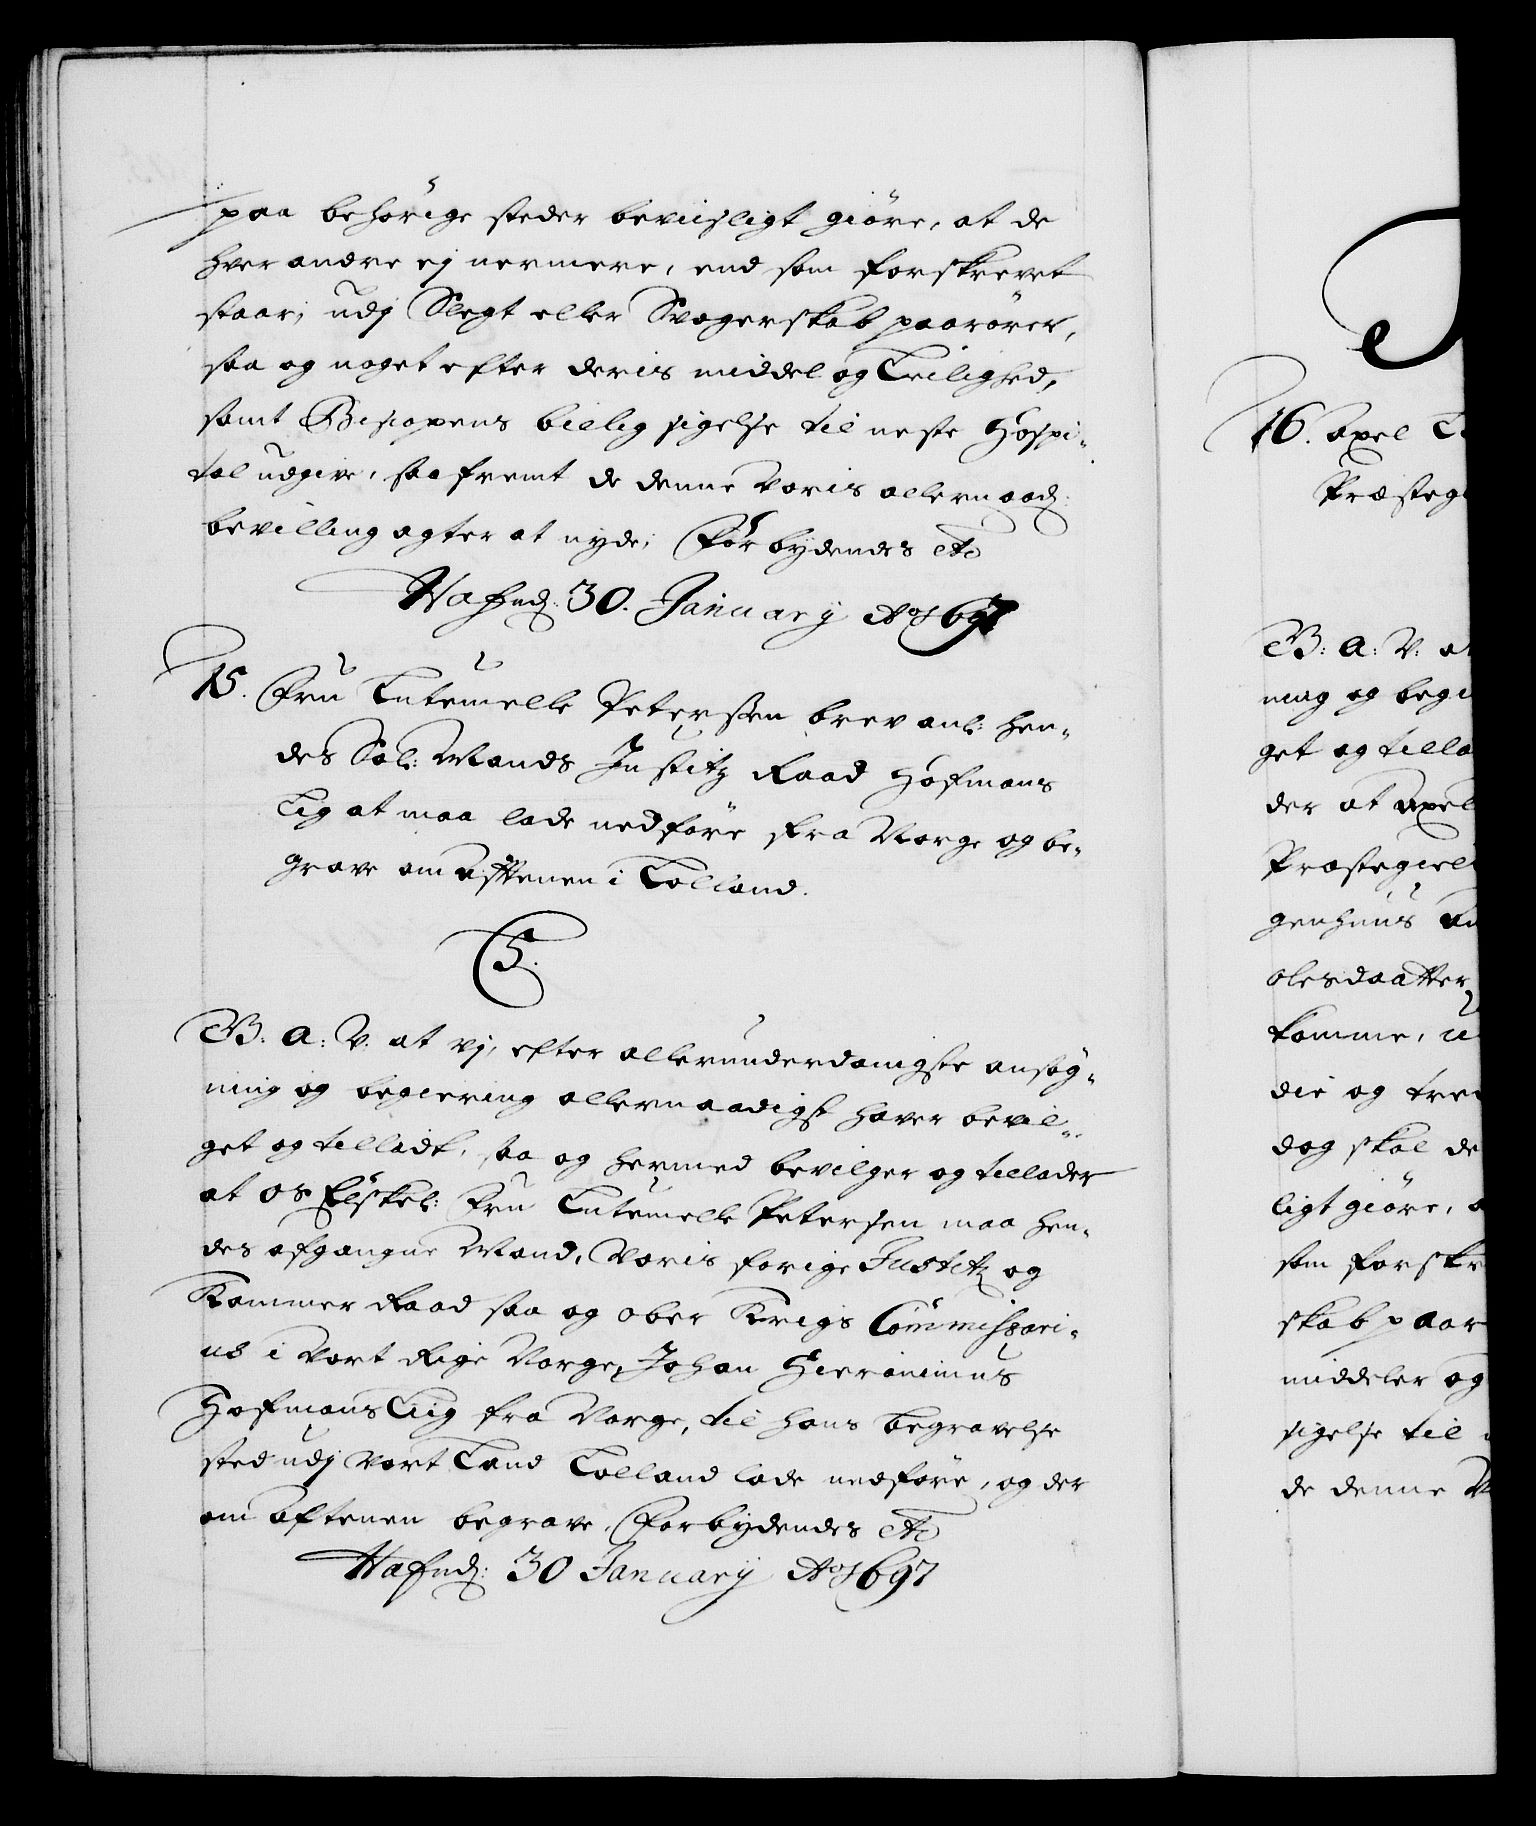 paa behörige steder beviisligt giöre, at de
hver andre ej nermere, end som forskrevet
staar, udj Slegt eller Svogerskab paarörer,
saa og noget efter deris middel og Leilighed,
samt Bispopens billig sigelse til neste Hospi-
tal udgive, saafremt de denne voris allernaad:
bevilling agter at nyde; Forbydendes etc
Hafnd: 30. January Ao 1697
15. Fru Lutemelle Peterssen brev anl: hen-
des Sal: Mands Justitz Raad Hofmans
Lig at maa lade nedföre fra Norge og be-
grave om Aftenen i Lolland.
C5.
G. A. V. at vj, efter allerunderdanigste ansög-
ning og begiering allernaadigst haver bevil-
get og tilladt, saa og hermed bevilger og tillader
at os Elskel: Fru Lutemelle Petersen maa hen-
des afgangne Mand, Voris forige Justitz og
Kammer Raad saa og Ober Krigs Commissari-
us i vort Rige Norge, Johan Hieronimus
Hofmans Liig fra Norge, til hans begravelse
sted udj vort Land Lolland lade nedföre, og der
om aftenen begrave, Forbydendes etc
Hafnd: 30 January Ao 1697
16. Axel
Præsteg
G: A: V: at
ning og begi
get og tilla
der at Axel
Præstegiel
genhuus
olesdaatter
komme, u
die og tre
dog skal de
ligt giöre, a
som forskr
skab paar
middeler og
sigelse til
de denne V